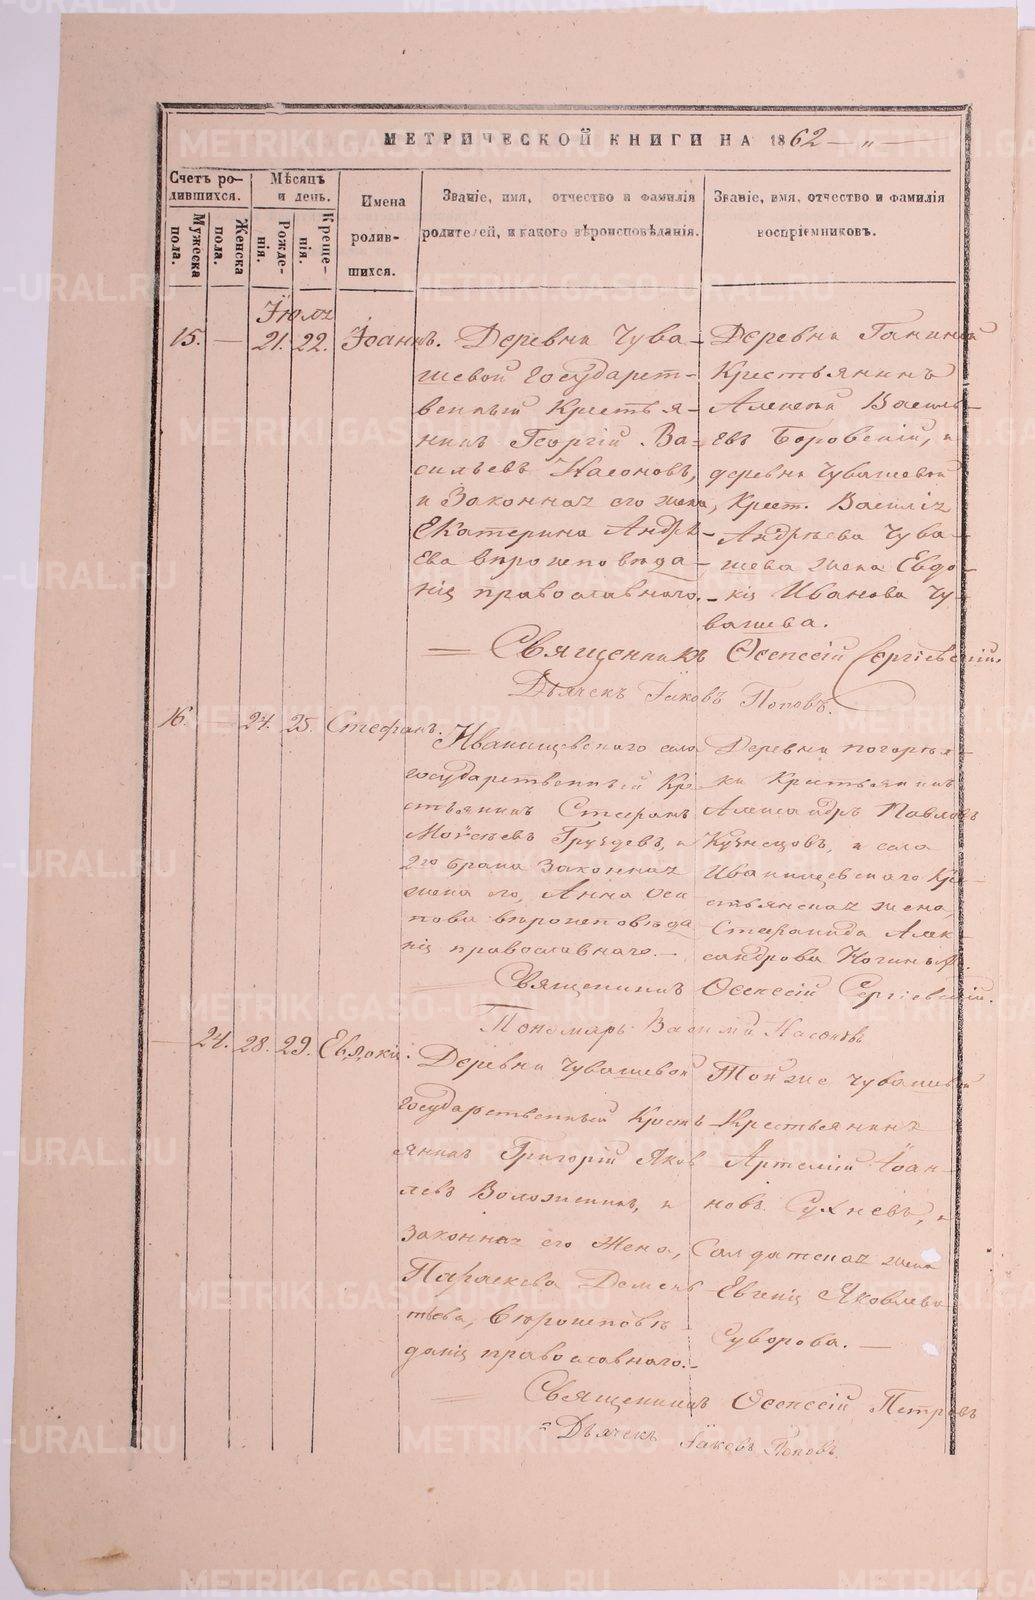 МЕТРИЧЕСКОЙ КНИГИ НА 1862 — „ —
Счетъ ро-
дившихся.
Мужеска
пола.
Женска
пола.
Мѣсяцъ
и день.
Рожде-
нія.
Креще-
нія.
Имена
родив-
шихся.
Званіе, имя, отчество и фамилія
родителей, и какого вѣроисповѣданія.
Званіе, имя, отчество и фамилія
воспріемниковъ.
Іюля
15. — 21. 22. Іоаннъ.
Деревни Чува-
шевой Государст-
венный Крестья-
нинъ Георгій Ва-
сильевъ Насоновъ,
и Законная его жена
Екатерина Андрѣ-
ева вѣроисповѣда-
нія православнаго.
Деревни Ганиной
Крестьянинъ
Алексѣй Василь-
евъ Боровскій, и
деревни Чувашевой
Крест. Василія
Андрѣева Чува-
шева жена Евдо-
кія Иванова Чу-
вашева.
— Священникъ Сергіевскій.
Дьячекъ Іаковъ Поповъ.
16. — 24. 25. Стефанъ.
Иванищевскаго села
государственный Кре-
стьянинъ Стефанъ
Моѵсеевъ Груздевъ, и
2го брака Законная
жена его, Анна Оси
пова вѣроисповѣда
нія православнаго. —
Деревни погорѣл-
ки Крестьянинъ
Александръ Павловъ
Кузнецовъ, и села
Иванищевскаго Кре-
стьянская жена,
Стефанида Алек-
сандрова
Священникъ Сергіевскій.
Пономарь Василій Насоновъ
— 24. 28. 29. Евдокія.
Деревни Чувашевой
государственный Кресть
янинъ Григорій Яков
левъ Воложенинъ, и
законная его Жена,
Параскева Демен
тьева, вѣроисповѣ
данія православнаго. —
Той же Чувашевой
Крестьянинъ
Артемій Іоан-
новъ Сухневъ, и
Солдатская жена
Евгенія Яковлева
Суворова. —
— Священникъ Петровъ
Дьячекъ Іаковъ Поповъ.
METRIKI.GASO-URAL.RU